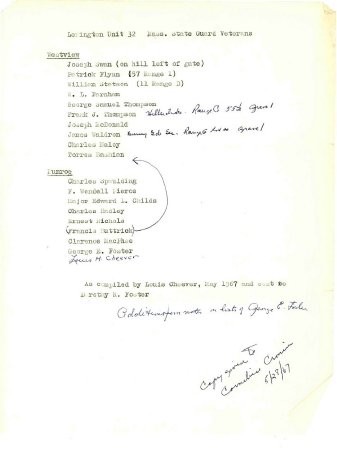 Lexington Unit 32 Mass. State Guard Veterans
Westview
Joseph Swan (on hill left of gate)
Patrick Flynn (57 Range I)
William Stetson (11 Range D)
H. L. Farnham
George Samuel Thompson
Frank J. Thompson Range C 55th Grave 1
Joseph McDonald
James Waldron Range 6 Grave 1
Charles Daley
Forres
Munroe
Charles Spaulding
F. Wendall Pierce
Major Edward L. Childs
Charles Hadley
Ernest Nichols
(Francis Buttrick)
Clarence MacPhee
George E. Foster
Louis H. Cheever
As compiled by Louis Cheever, May 1967 and sent to
Dorothy R. Foster
Additions from notes on lists of George E. Foster
Copy given to
Cornelius Cronin
5/23/67